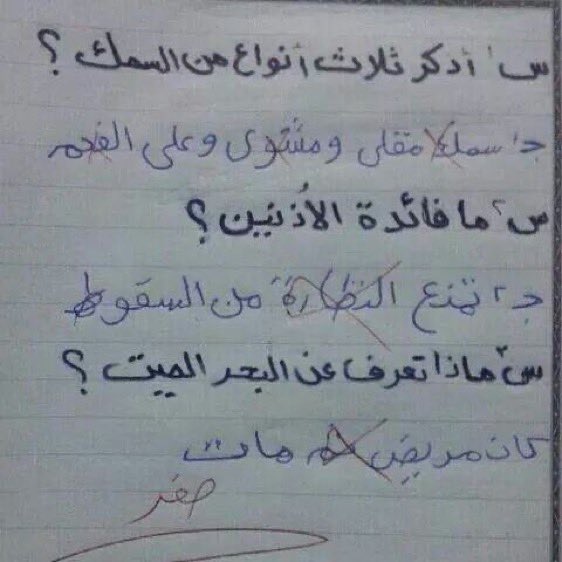 س١ أذكر ثلاث أنواع من السمك ؟
ج١ سمك مقلى ومشوى وعلى الفحم
س٢ ما فائدة الأذنين ؟
ج٢ تمنع النظارة من السقوط
س٣ ماذا تعرف عن البحر الميت ؟
كان مريض ثم مات
صفر